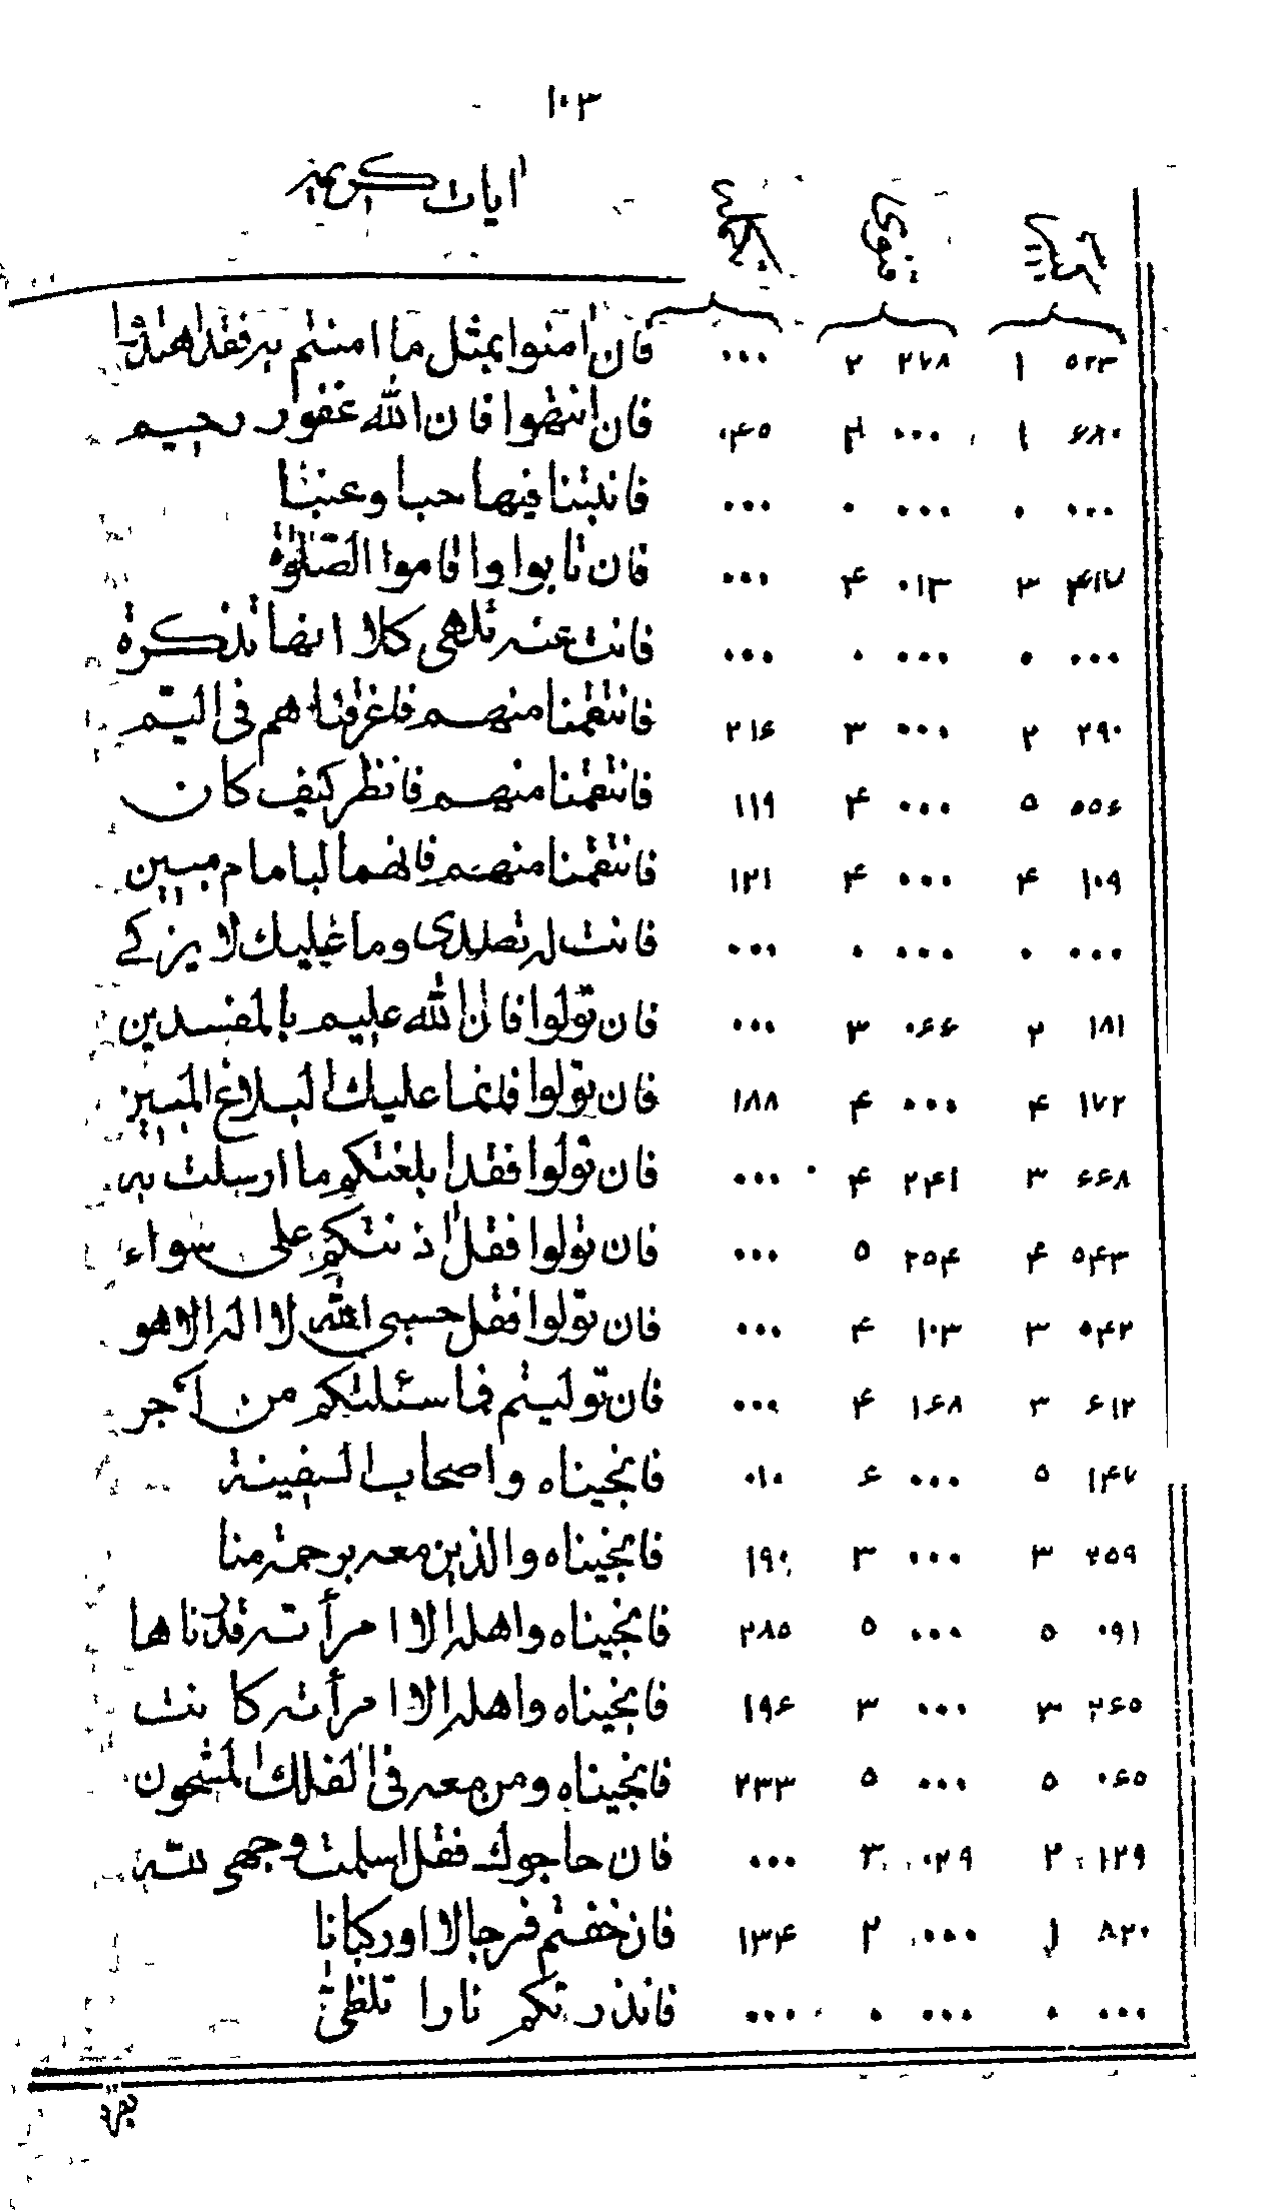 ١٠٣
آیات کریمه
٥٢٣ ١ ٢٧٨ ٢ ٠٠٠ فان امنوا بمثل ما امنتم به فقد اهتدوا
۶٨٠ ١ ٠٠٠ ٠۴٥ فان انتهوا فان الله غفور رحیم
٠٠٠ ٠ ٠٠٠ ٠ ٠٠٠ فانبتنا فیها حبا وعنبا
۴١٧ ٣ ٠١٣ ۴ ٠٠٠ فان تابوا واقاموا الصلوة
٠٠٠ ٠ ٠٠٠ ٠ ٠٠٠ فانت عنه تلهی کلا انها تذکرة
٢٩٠ ٢ ٠٠٠ ٣ ٢١۶ فانتقمنا منهم فاغرقناهم فی الیم
٠٥۶ ٥ ٠٠٠ ۴ ١١٩ فانتقمنا منهم فانظر کیف کان
١٠٩ ۴ ٠٠٠ ۴ ١٢١ فانتقمنا منهم فانهما لبامام مبین
٠٠٠ ٠ ٠٠٠ ٠ ٠٠٠ فانت له تصدی وما علیک لا یزکی
١٨١ ٢ ٠۶۶ ٣ ٠٠٠ فان تولوا فان الله علیم بالمفسدین
١٧٢ ۴ ٠٠٠ ۴ ١٨٨ فان تولوا فانما علیک البلاغ المبین
۶۶٨ ٣ ٢۴١ ۴ ٠٠٠ فان تولوا فقد ابلغتکم ما ارسلت به
٥۴٣ ۴ ٢٥۴ ٥ ٠٠٠ فان تولوا فقل اذنتکم علی سواء
٠۴٢ ٣ ١٠٣ ۴ ٠٠٠ فان تولوا فقل حسبی الله لا اله الا هو
۶١٢ ٣ ١۶٨ ۴ ٠٠٠ فان تولیتم فما سئلتکم من اجر
١۴٧ ٥ ٠٠٠ ۶ ٠١٠ فانجیناه واصحاب السفینة
٢٥٩ ٣ ٠٠٠ ٣ ١٩٠ فانجیناه والذین معه برحمة منا
٠٩١ ٥ ٠٠٠ ٥ ٢٨٥ فانجیناه واهله الا امرأته قدرناها
٢۶٥ ٣ ٠٠٠ ٣ ١٩۶ فانجیناه واهله الا امرأته کانت
٠۶٥ ٥ ٠٠٠ ٥ ٢٣٣ فانجیناه ومن معه فی الفلک المشحون
١٢٩ ٢ ٠٢٩ ٣ ٠٠٠ فان حاجوک فقل اسلمت وجهی لله
٨٢٠ ١ ٠٠٠ ٢ ١٣۴ فان خفتم فرجالا او رکبانا
٠٠٠ ٠ ٠٠٠ ٠ ٠٠٠ فانذرتکم نارا تلظی